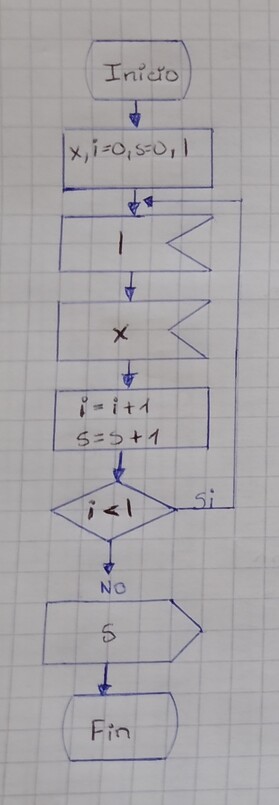 Inicio
x, i=0, s=0, l
l
x
i = i+1
s = s+1
i < l
Si
NO
s
Fin